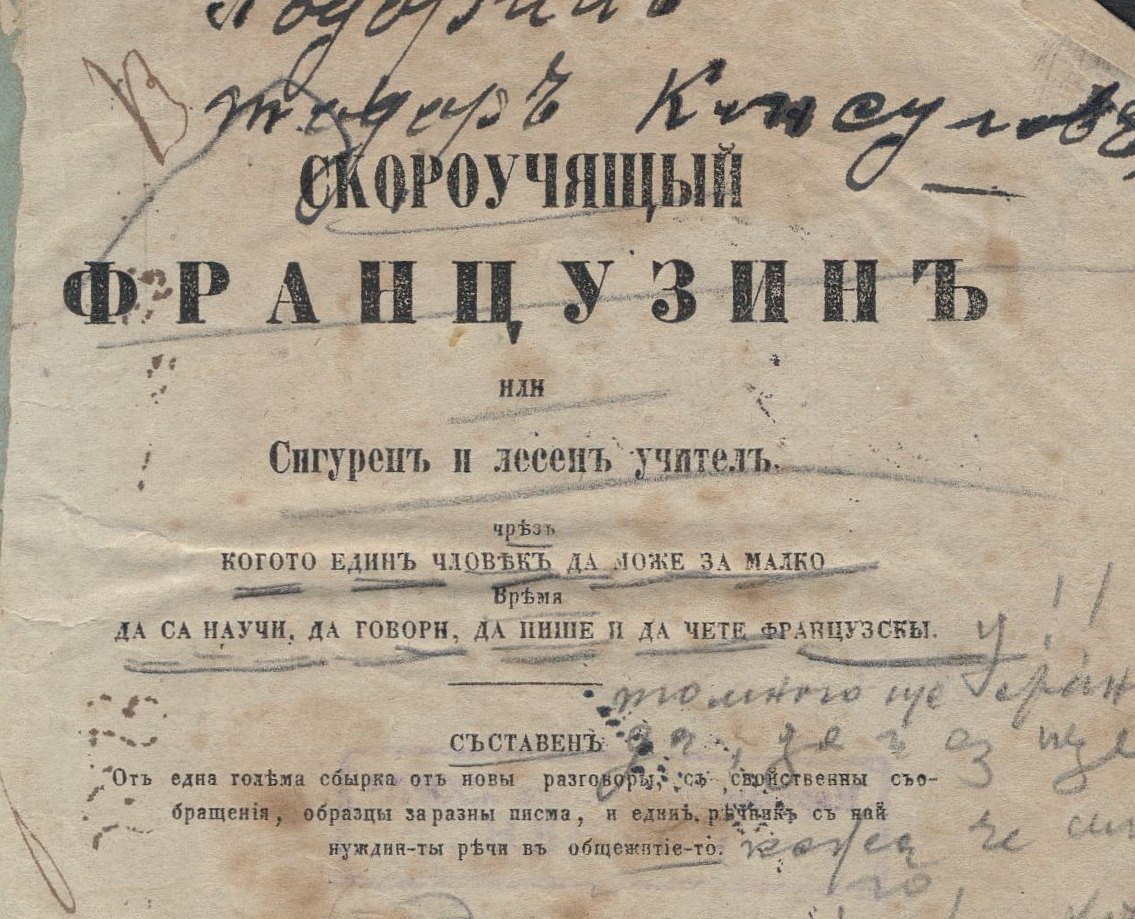 тодоръ Консулов
СКОРОУЧЯЩЫЙ
ФРАНЦУЗИНЪ
или
Сигуренъ и лесенъ учителъ.
чрѣзъ
КОГОТО ЕДИНЪ ЧЛОВѢКЪ ДА МОЖЕ ЗА МАЛКО
Врѣмя
ДА СА НАУЧИ, ДА ГОВОРИ, ДА ПИШЕ И ДА ЧЕТЕ ФРАНЦУЗСКЫ.
СЪСТАВЕНЪ
Отъ една голѣма сбырка отъ новы разговоры, съ свойственны съо-
бращенія, образцы за разны писма, и единъ рѣчникъ съ най
нуждни-ты рѣчи въ общежитіе-то.